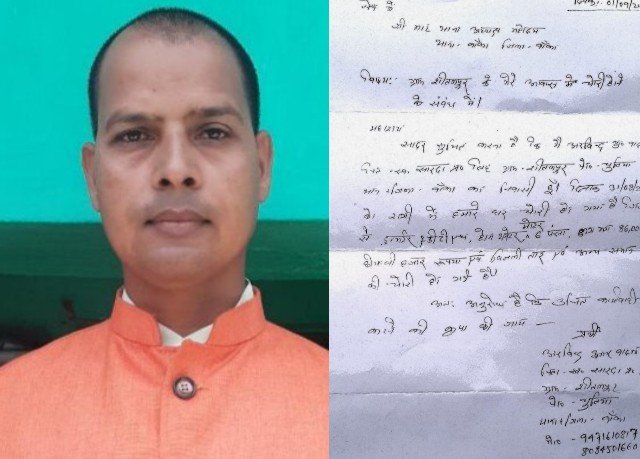 सेवा में
दिनांक: 01/09/2
श्री मान् थाना अध्यक्ष महोदय
थाना- बाँका जिला- बाँका
विषय: ग्राम शीतलपुर के मेरे आवास में चोरी होने
के संबंध में।
महाशय
सादर सूचित करना है कि मैं अरविन्द कु०
पिता- स्व० शारदा प्र० सिंह ग्राम- शीतलपुर पो०-
थाना/जिला- बाँका का निवासी हूँ। दिनांक 31/08/
के रात्रि में हमारे घर चोरी हो गया है
से इन्वर्टर, बैटरी, मोटर, पंखा, 86,00
हजार रूपया एवं बिजली तार एवं अन्य समान
की चोरी हो गई है।
अतः अनुरोध है कि उचित कार्यवाही
करने की कृपा की जाय —
प्रार्थी
अरविन्द कुमार
पिता- स्व० शारदा प्र०
ग्राम- शीतलपुर
पो०-
थाना/जिला- बाँका
मो०- 9471610817
8084501660